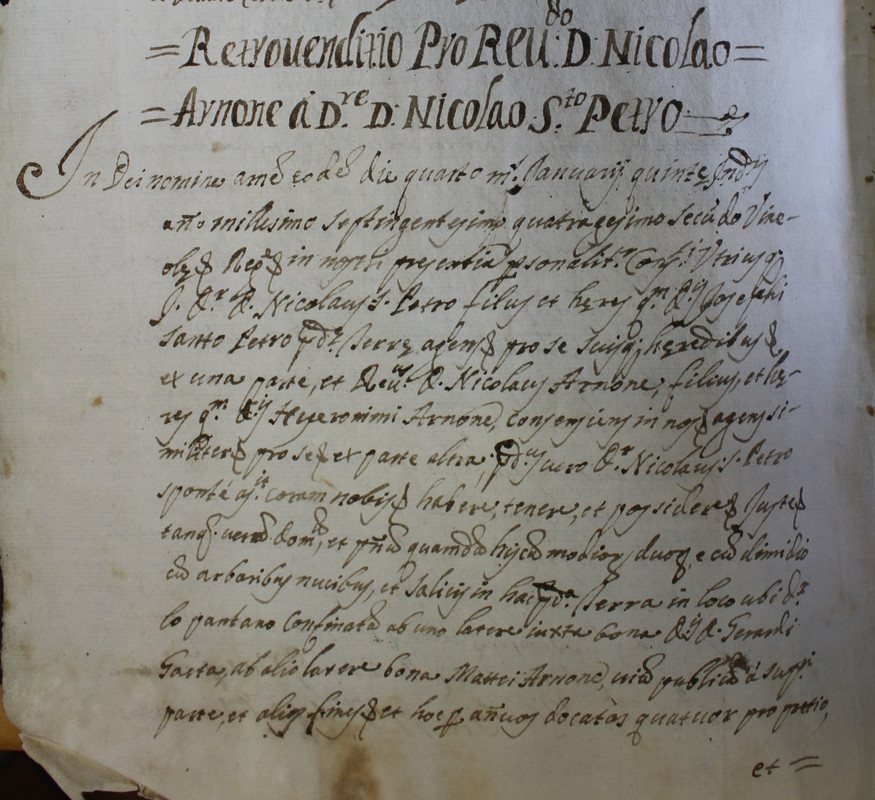 = Retrovenditio Pro Reu:do D: Nicolao =
= Arnone à D.re D: Nicolao S.to Petro
In Dei nomine amē eodē die quarto m.s Januarij quinte Ind.
año millesimo septingentesimo quatragesimo secūdo Vine-
in nostri presentia psonalit.r Const.s Utriusq;
J. D.r D. Nicolaus S. Petro filius et heres q.m D. Josephi
santo Petro pd.e Terre agens pro se suisq; heredibus
ex una parte, et Reu.s D. Nicolaus Arnone, filius, et he-
res q.m Hyeronimi Arnone, consentiens in nos agens si-
militer pro se ex parte altra; pd.us vero D.r Nicolaus S. Petro
sponte as.it coram nobis habere, tenere, et possidere Juste
tanq. verū dom., et quamdā modior duor, e cū dimidio
cū arboribus nucibus, et Salicis in hac pd.a Terra in loco ubi d.r
lo pantano Confinatā ab uno latere iuxta bona D. Gerardi
Gaeta, ab alio latere bona Mattei Arnone, viā publicā à sup.i
parte, et alios fines et hoc p añuos docatos quatuor pro pretio,
et =